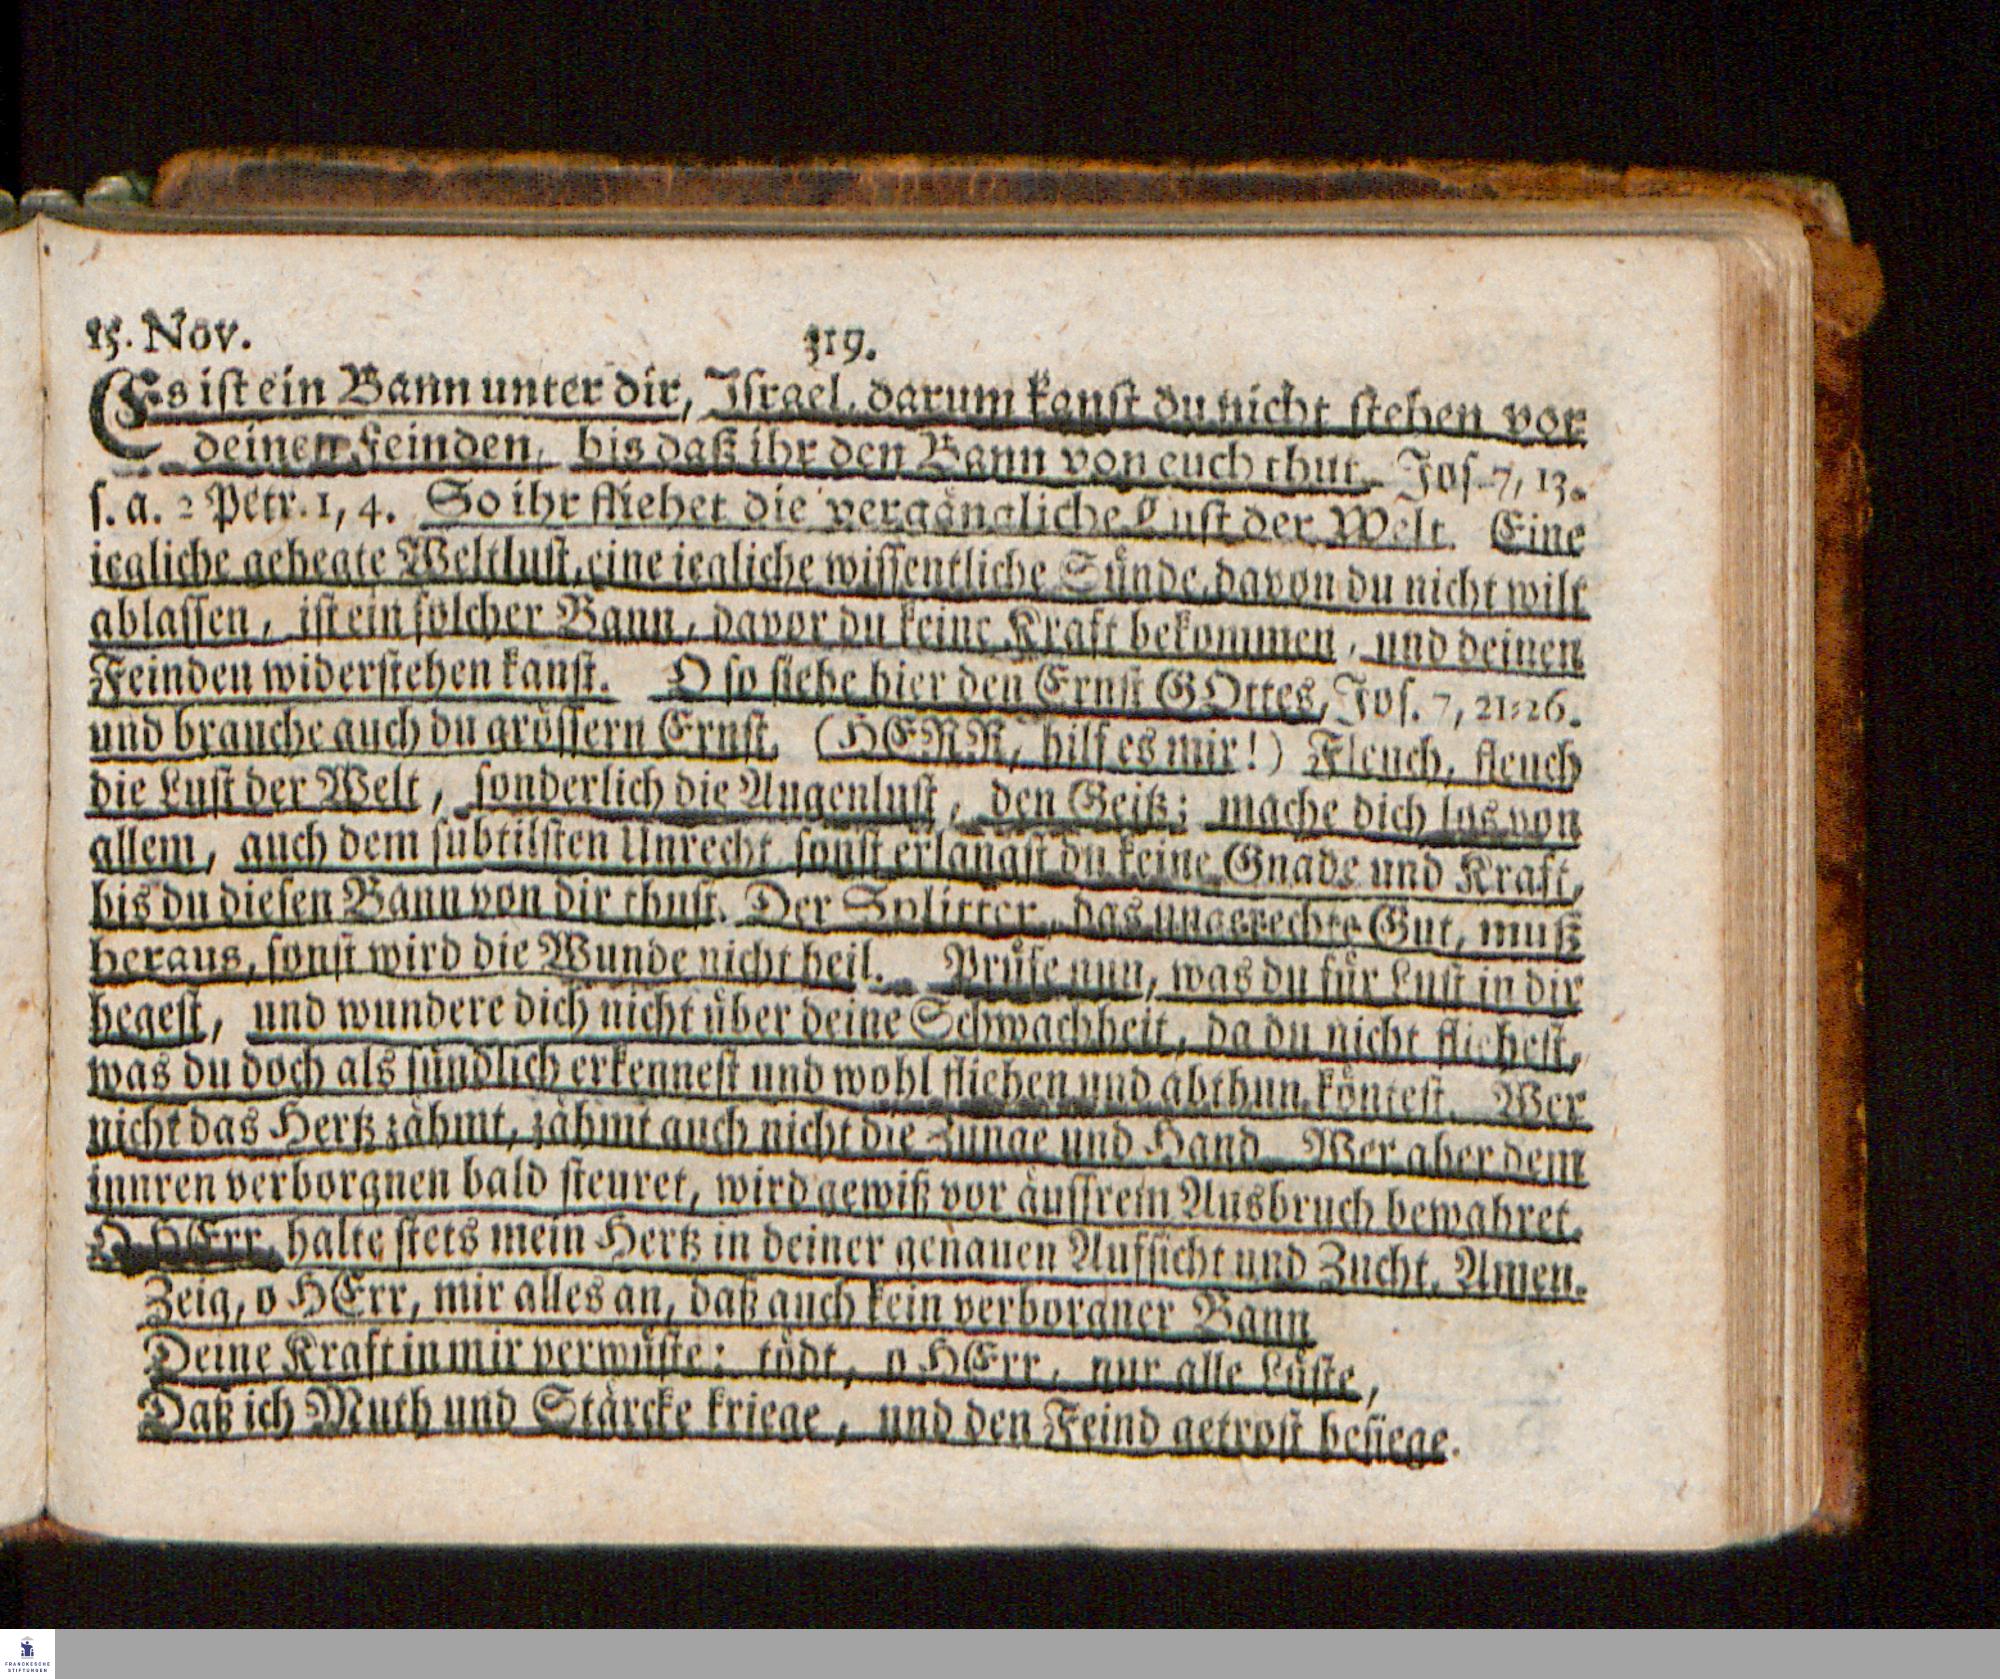 15. Nov. 319.
Es ist ein Bann unter dir, Israel, darum kanst du nicht stehen vor
deinen Feinden, bis daß ihr den Bann von euch thut. Jos. 7, 13.
s. a. 2 Petr. 1, 4. So ihr fliehet die vergängliche Lust der Welt. Eine
iegliche gehegte Weltlust, eine iegliche wissentliche Sünde, davon du nicht wilt
ablassen, ist ein solcher Bann, davor du keine Kraft bekommen, und deinen
Feinden widerstehen kanst. O so siehe hier den Ernst GOttes, Jos. 7, 21-26.
und brauche auch du grössern Ernst. (HERR, hilf es mir!) Fleuch, fleuch
die Lust der Welt, sonderlich die Augenlust, den Geitz; mache dich los von
allem, auch dem subtilsten Unrecht, sonst erlangst du keine Gnade und Kraft,
bis du diesen Bann von dir thust. Der Splitter, das ungerechte Gut, muß
heraus, sonst wird die Wunde nicht heil. Prüfe nun, was du für Lust in dir
hegest, und wundere dich nicht über deine Schwachheit, da du nicht fliehest,
was du doch als sündlich erkennest und wohl fliehen und abthun köntest. Wer
nicht das Hertz zähmt, zähmt auch nicht die Zunge und Hand. Wer aber dem
innren verborgnen bald steuret, wird gewiß vor äussrem Ausbruch bewahret.
O HErr, halte stets mein Hertz in deiner genauen Aufsicht und Zucht. Amen.
Zeig, o HErr, mir alles an, daß auch kein verborgner Bann
Deine Kraft in mir verwüste: tödt, o HErr, nur alle Lüste,
Daß ich Muth und Stärcke kriege, und den Feind getrost besiege.
FRANCKESCHE
STIFTUNGEN